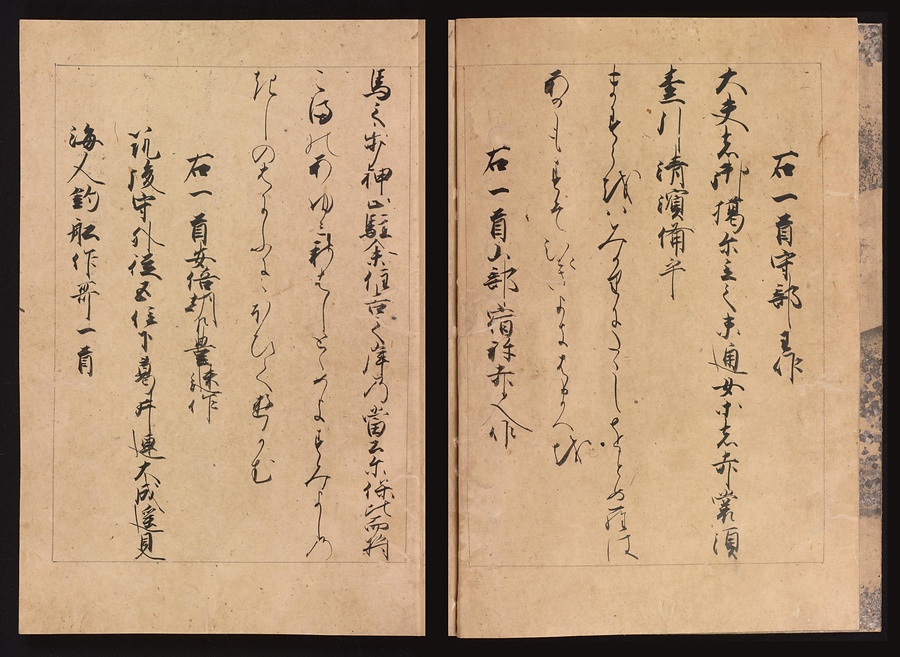 右一首守部王作
大夫者御獦尓立之未通女等者赤裳須
素引清濱備乎
ますらをはみかりにたゝしをとめらは
あかもすそひきよきはまへを
右一首山部宿祢赤人作
馬之歩押止駐余住吉之岸乃黄土尓保比而将
こまのあゆみしはしとめよすみよしの
きしのはにふにゝほひてゆかむ
右一首安倍朝臣豊継作
筑後守外従五位下葛井連大成遥見
海人釣船作歌一首